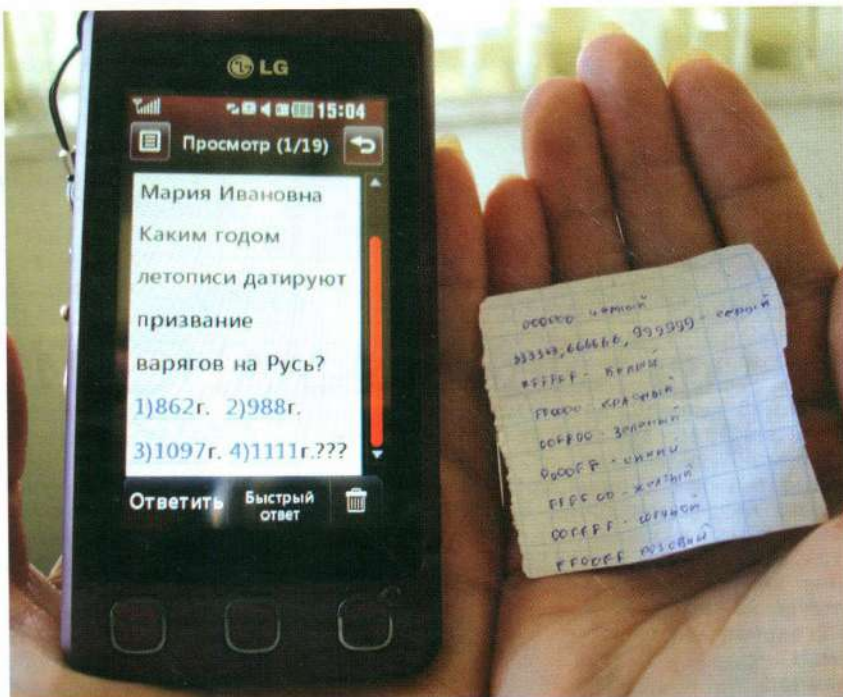 LG
15:04
Просмотр (1/19)
Мария Ивановна
Каким годом
летописи датируют
призвание
варягов на Русь?
1)862г. 2)988г.
3)1097г. 4)1111г.???
Ответить Быстрый ответ
000000 черный
333333, 666666, 999999 - серый
FFFFFF - белый
FF0000 красный
00FF00 - зеленый
0000FF - синий
FFFF00 - желтый
00FFFF -
FF00FF розовый